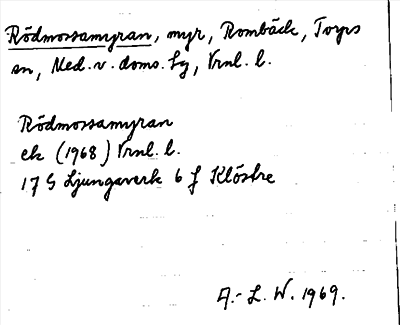 Rödmossamyran, myr, Rombäck, Torps
sn, Med. v. doms. Lg, Vrnl. l.
Rödmossamyran
ek (1968) Vrnl. l.
17 G Ljungaverk 6 f Klöstre
A.-L. W. 1969.